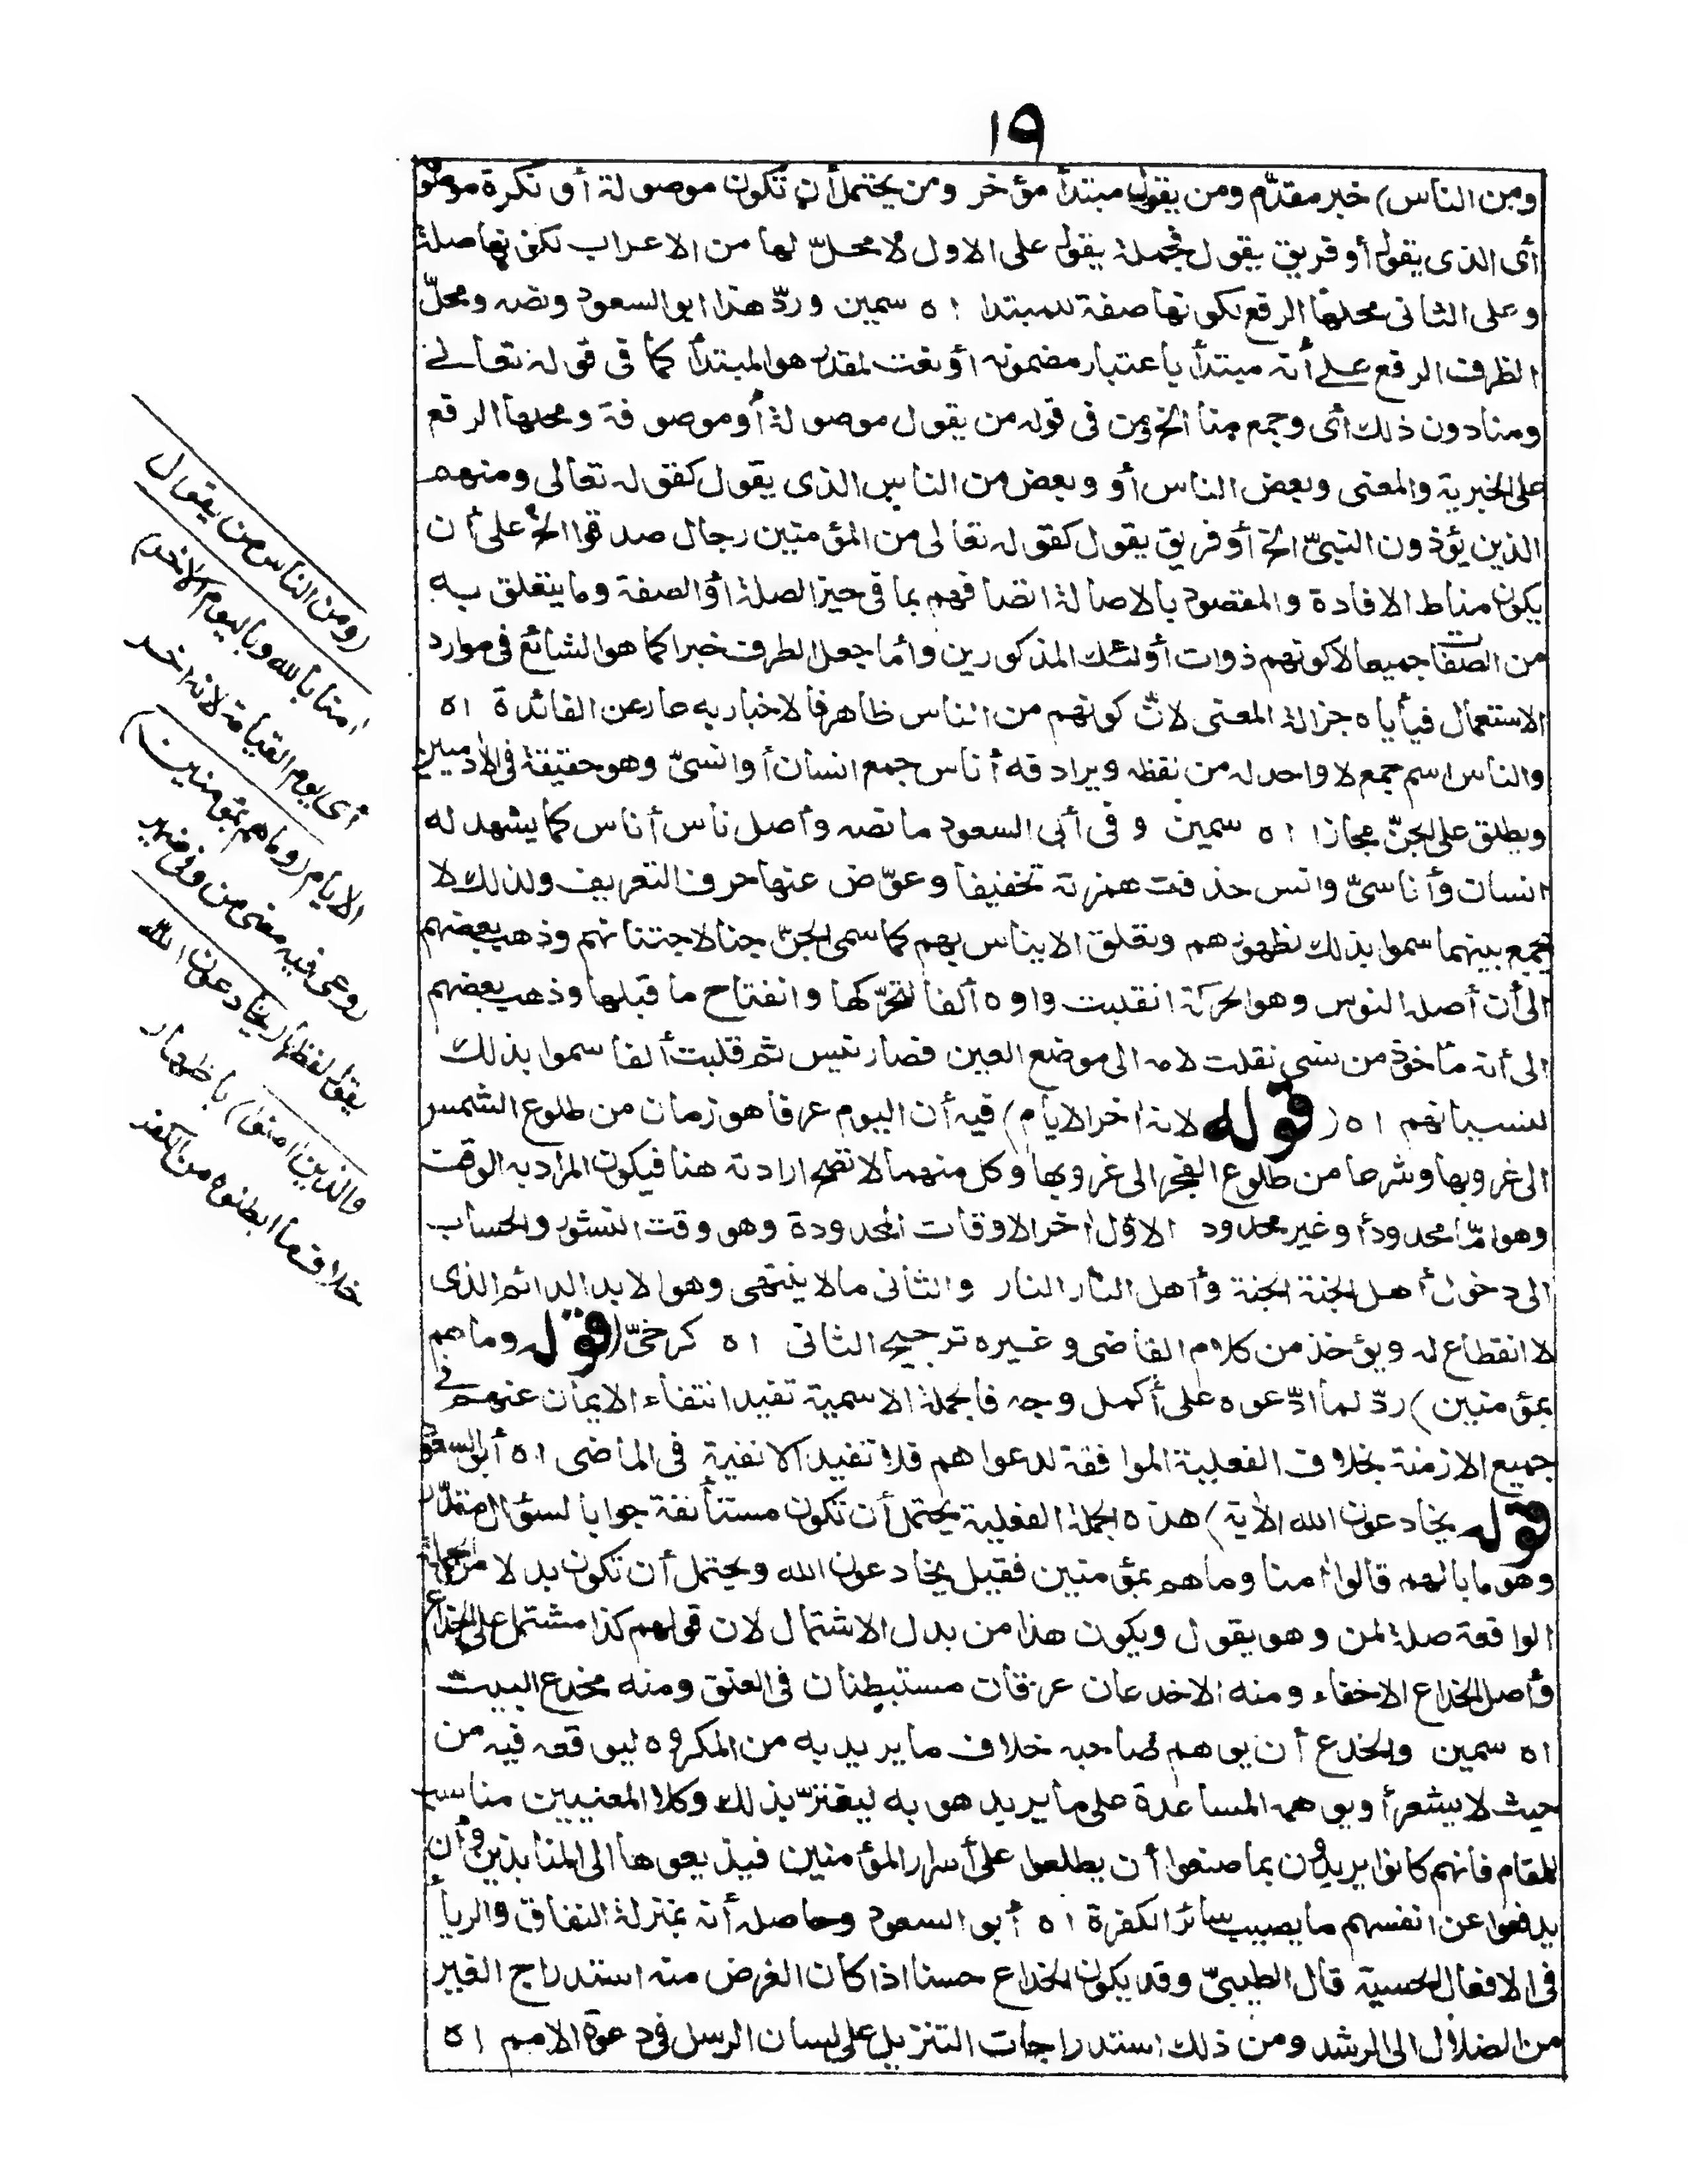 ١٩
ومن الناس) خبر مقدّم ومن يقول مبتدأ مؤخر ومن يحتمل أن تكون موصولة أو نكرة موصوفة
أى الذى يقول أو فريق يقول فجملة يقول على الاول لا محلّ لها من الاعراب لكونها صلة
وعلى الثانى محلها الرفع لكونها صفة للمبتدا اه سمين وردّ هذا ابو السعود ونصه ومحلّ
الظرف الرفع على أنه مبتدأ باعتبار مضمونه أو نعت لمقدر هو المبتدأ كما فى قوله تعالى
ومنا دون ذلك أى وجمع منا الخ ومن فى قوله من يقول موصولة أو موصوفة ومحلها الرفع
على الخبرية والمعنى وبعض الناس أو وبعض من الناس الذى يقول كقوله تعالى ومنهم
الذين يؤذون النبىّ الخ أو فريق يقول كقوله تعالى من المؤمنين رجال صدقوا الخ على أن
يكون مناط الافادة والمقصود بالاصالة اتصافهم بما فى حيز الصلة أو الصفة وما يتعلق به
من الصفات جميعا لا كونهم ذوات أولئك المذكورين وأما جعل الظرف خبرا كما هو الشائع فى موارد
الاستعمال فيأباه جزالة المعنى لانّ كونهم من الناس ظاهر فالاخبار به عار عن الفائدة اه
والناس اسم جمع لا واحد له من لفظه ويرادفه أناس جمع انسان أو انسىّ وهو حقيقة فى الآدميين
ويطلق على الجنّ مجازا اه سمين وفى أبى السعود ما نصه وأصل ناس أناس كما يشهد له
انسان وأناسىّ وانس حذفت همزته تخفيفا وعوّض عنها حرف التعريف ولذلك لا
يجمع بينهما سموا بذلك لظهورهم وتعلق الايناس بهم كما سمى الجنّ جنا لاجتنانهم وذهب بعضهم
الى أن أصله النوس وهو الحركة انقلبت واوه ألفا لتحرّكها وانفتاح ما قبلها وذهب بعضهم
الى أنه مأخوذ من نسى نقلت لامه الى موضع العين فصار نيس ثم قلبت ألفا سموا بذلك
لنسيانهم اه (قوله لانه اٰخر الايام) فيه أن اليوم عرفا هو زمان من طلوع الشمس
الى غروبها وشرعا من طلوع الفجر الى غروبها وكل منهما لا تصح ارادته هنا فيكون المراد به الوقت
وهو امّا محدود أو غير محدود الاوّل اٰخر الاوقات المحدودة وهو وقت النشور والحساب
الى دخول أهل الجنة الجنة وأهل النار النار والثانى ما لا ينتهى وهو الابد الدائم الذى
لا انقطاع له ويؤخذ من كلام القاضى وغيره ترجيح الثانى اه كرخىّ (قوله وما هم
بمؤمنين) ردّ لما ادّعوه على أكمل وجه فالجملة الاسمية تفيد انتفاء الايمان عنهم فى
جميع الازمنة بخلاف الفعلية الموافقة لدعواهم فلا تفيد الا نفيه فى الماضى اه أبو السعود
قوله يخادعون الله الاٰية) هذه الجملة الفعلية يحتمل أن تكون مستأنفة جوابا لسؤال مقدّر
وهو ما بالهم قالوا اٰمنا وما هم بمؤمنين فقيل يخادعون الله ويحتمل أن تكون بدلا من الجملة
الواقعة صلة لمن وهو يقول ويكون هذا من بدل الاشتمال لان قولهم كذا مشتمل على الخداع
وأصل الخداع الاخفاء ومنه الاخدعان عرقان مستبطنان فى العنق ومنه مخدع البيت
اه سمين والخدع أن يوهم صاحبه خلاف ما يريد به من المكروه ليوقعه فيه من
حيث لا يشعر أو يوهمه المساعدة على ما يريد هو به ليغترّ بذلك وكلا المعنيين مناسب
للمقام فانهم كانوا يريدون بما صنعوا أن يطلعوا على أسرار المؤمنين فيذيعوها الى المنابذين وأن
يدفعوا عن انفسهم ما يصيب سائر الكفرة اه أبو السعود وحاصله أنه بمنزلة النفاق والريأ
فى الافعال الحسية قال الطيبىّ وقد يكون الخداع حسنا اذا كان الغرض منه استدراج الغير
من الضلال الى الرشد ومن ذلك استدراجات التنزيل على لسان الرسل فى دعوة الامم اه
(ومن الناس من يقول
اٰمنا بالله وباليوم الاٰخر)
أى يوم القيامة لانه اٰخر
الايام (وما هم بمؤمنين)
روعى فيه معنى من وفى ضمير
يقول لفظها (يخادعون الله
والذين اٰمنوا) باظهار
خلاف ما ابطنوه من الكفر